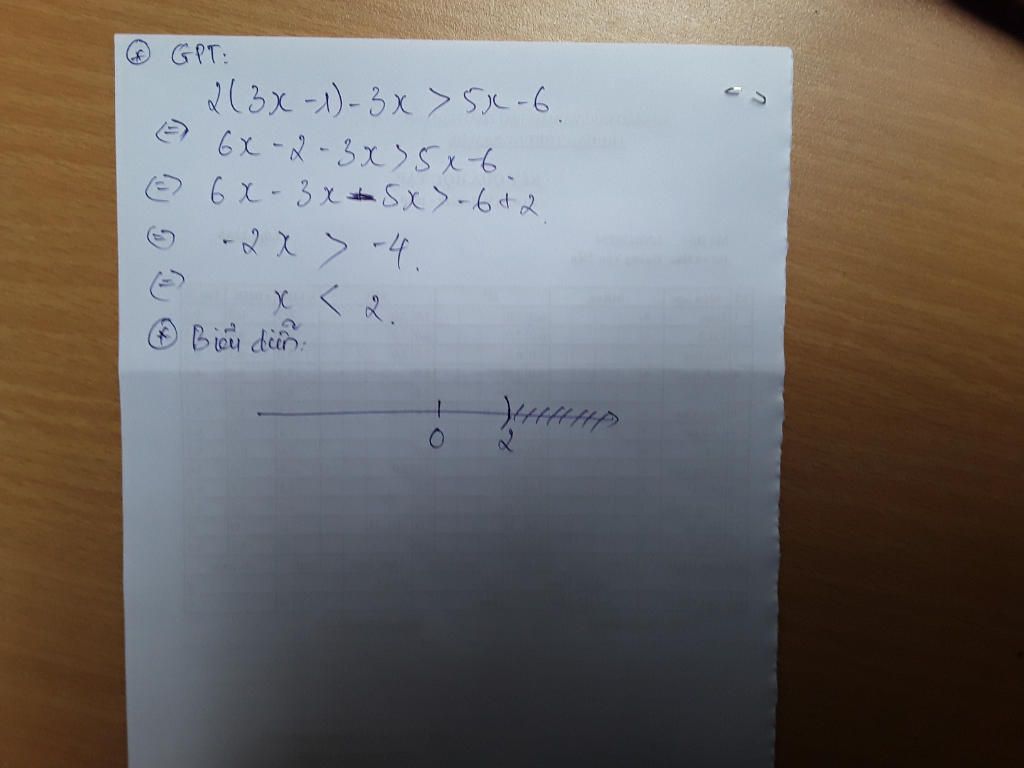 * GPT:
2(3x - 1) - 3x > 5x - 6.
<=> 6x - 2 - 3x > 5x - 6.
<=> 6x - 3x - 5x > -6 + 2.
<=> -2x > -4.
<=> x < 2.
* Biểu diễn:
0 2